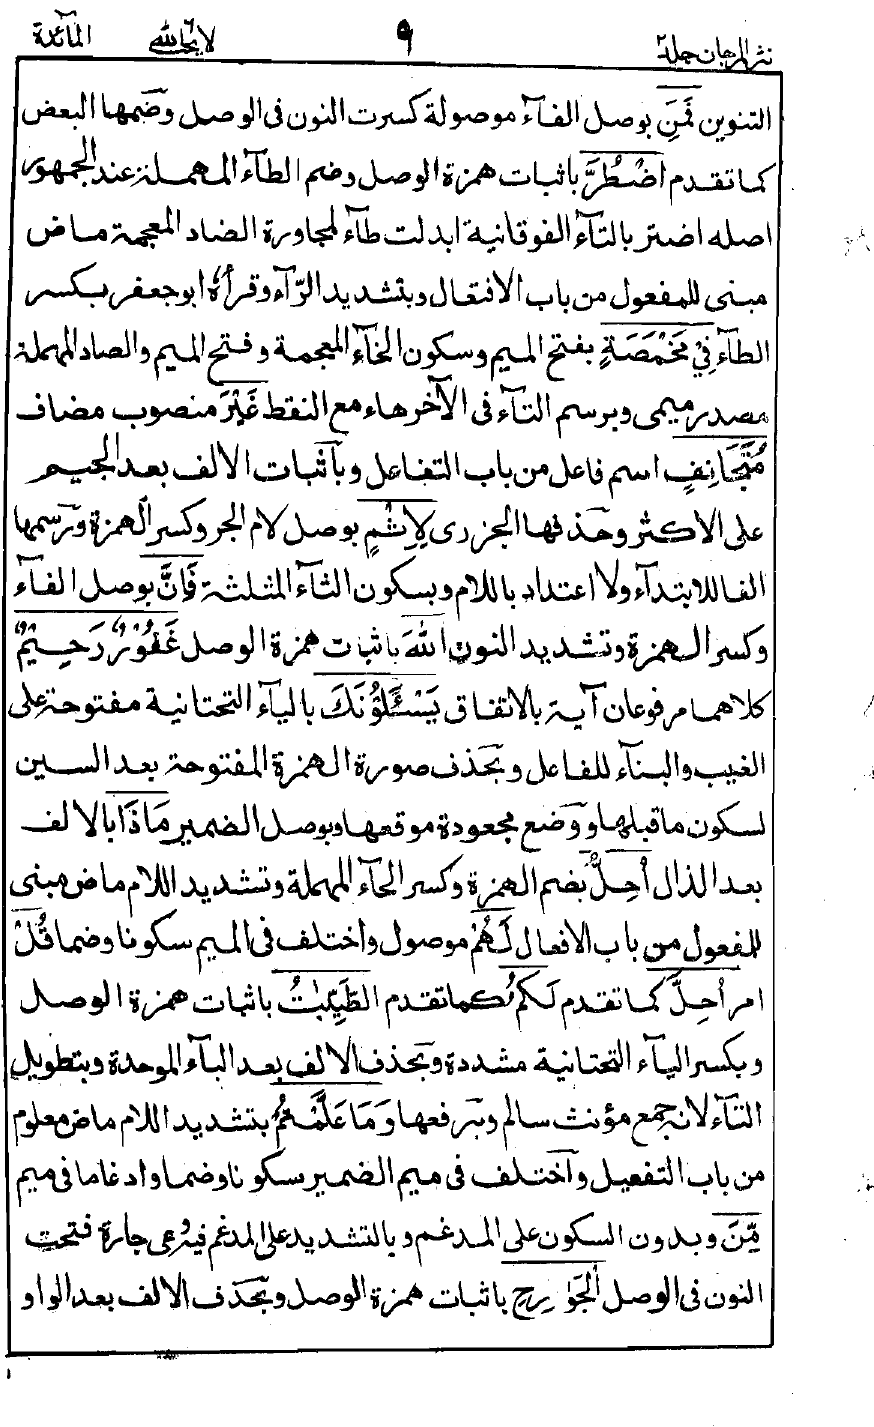 نثر المرجان جلد ٢ ٩ لا يحب الله ٦ المائدة
التنوين فَمَنِ بوصل الفآء موصولة كسرت النون فى الوصل وضمها البعض
كما تقدم اضْطُرَّ باثبات همزة الوصل وضم الطآء المهملة عند الجمهور
اصله اضتر بالتآء الفوقانية ابدلت طآء لمجاورة الضاد المعجمة ماض
مبنى للمفعول من باب الافتعال وبتشديد الرّآء وقرأه ابو جعفر بكسر
الطآء فِيْ مَخْمَصَةٍ بفتح الميم وسكون الخآء المعجمة وفتح الميم والصاد المهملة
مصدر ميمى وبرسم التآء فى الآخر هاء مع النقط غَيْرَ منصوب مضاف
مُتَجَانِفٍ اسم فاعل من باب التفاعل وبآثبات الالف بعد الجيم
على الاكثر وحذفها الجزرى لِاِثْمٍ بوصل لام الجر وكسر الهمزة ورسمها
الفا للابتدآء ولا اعتداد باللام وبسكون الثآء المثلثة فَاِنَّ بوصل الفآء
وكسر الهمزة وتشديد النون اللهَ باثبات همزة الوصل غَفُوْرٌ رَحِيْمٌ
كلاهما مرفوعان آية بالاتفاق يَسْئَلُوْنَكَ بالياء التحتانية مفتوحة على
الغيب والبنآء للفاعل وبحذف صورة الهمزة المفتوحة بعد السين
لسكون ما قبلها ووضع مجعودة موقعها وبوصل الضمير مَاذَا بالالف
بعد الذال اُحِلَّ بضم الهمزة وكسر الحآء المهملة وتشديد اللام ماض مبنى
للمفعول من باب الافعال لَهُمْ موصول واختلف فى الميم سكونا وضما قُلْ
امر اُحِلَّ كما تقدم لَكُمُ كما تقدم الطَّيِّبٰتُ باثبات همزة الوصل
وبكسر اليآء التحتانية مشددة وبحذف الالف بعد البآء الموحدة وبتطويل
التآء لانه جمع مؤنث سالم وبرفعها وَمَا عَلَّمْتُمْ بتشديد اللام ماض معلوم
من باب التفعيل واختلف فى ميم الضمير سكونا وضما وادغاما فى ميم
مِّنَ وبدون السكون على المدغم وبالتشديد على المدغم فيه وهى جارة فتحت
النون فى الوصل الْجَوَارِحِ باثبات همزة الوصل وبحذف الالف بعد الواو